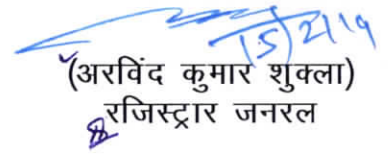 15/2/19
(अरविंद कुमार शुक्ला)
रजिस्ट्रार जनरल